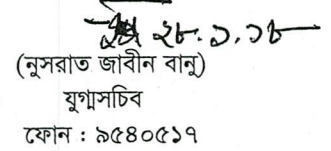 ২৮.১.১৮
(নুসরাত জাবীন বানু)
যুগ্মসচিব
ফোন : ৯৫৪০৫১৭